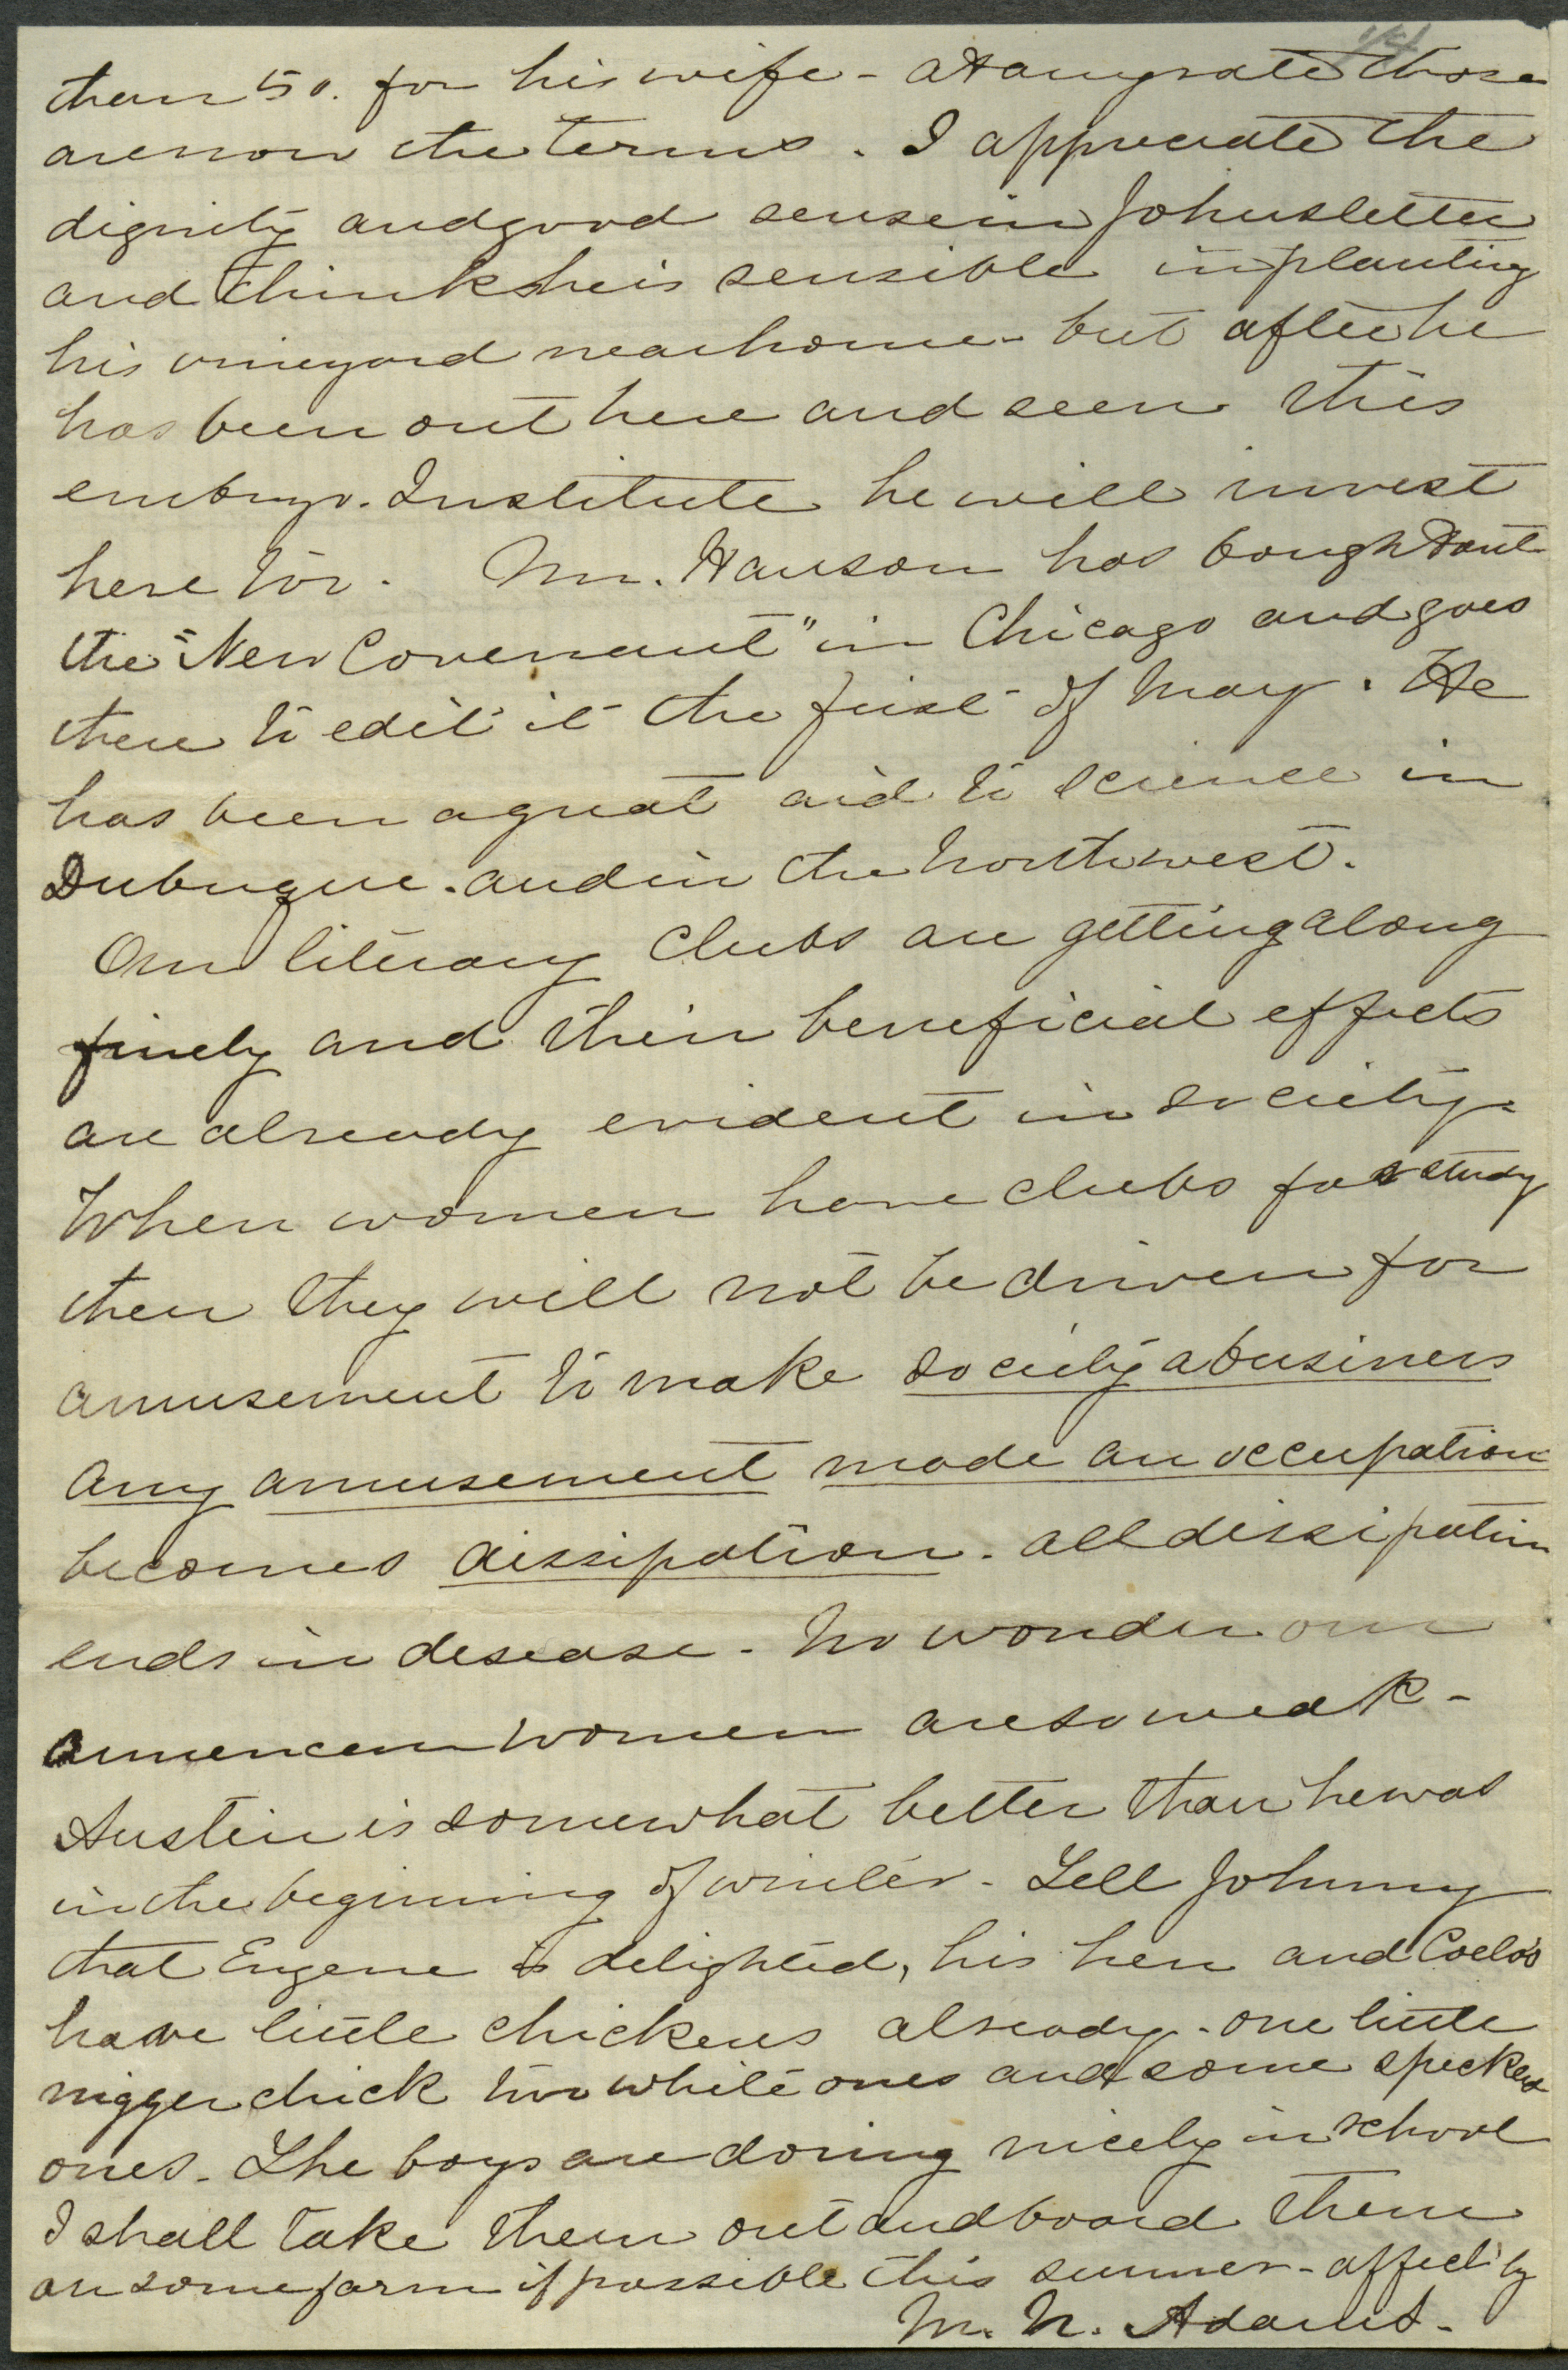 than 50. for his wife - At any rate those
are now the terms. I appreciate the
dignity and good sense in Johns letter
and think he is sensible in planting
his vineyard near home - but after he
has been out here and seen this
embryo. Institute he will invest
here too. Mr. Hanson has bought out
the "New Covenant" in Chicago and goes
there to edit it the first of May. He
has been a great aid to science in
Dubuque. and in the Northwest.
Our literary clubs are getting along
finely and their beneficial effects
are already evident in society.
When women have clubs for study
then they will not be driven for
amusement to make society a business
Any amusement made an occupation
becomes dissipation. all dissipation
ends in desease - No wonder our
American women are so weak -
Austin is somewhat better than he was
in the beginning of winter - Tell Johnny
that Eugene is delighted, his hen and Coelo's
have little chickens already - one little
nigger chick two white ones and some specked
ones. The boys are doing nicely in school
I shall take them out and board them
on some farm if possible this summer - affect'ly
M. N. Adams.